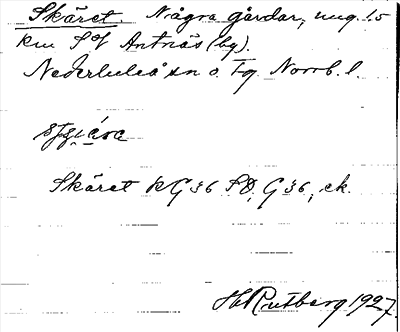 Skäret. Några gårdar, ung. 1.5
km SV Antnäs (by).
Nederluleå sn o. Tg. Norrb. l.
Skäret RG 36 SD, G 36, ek.
H Rutberg 1927.